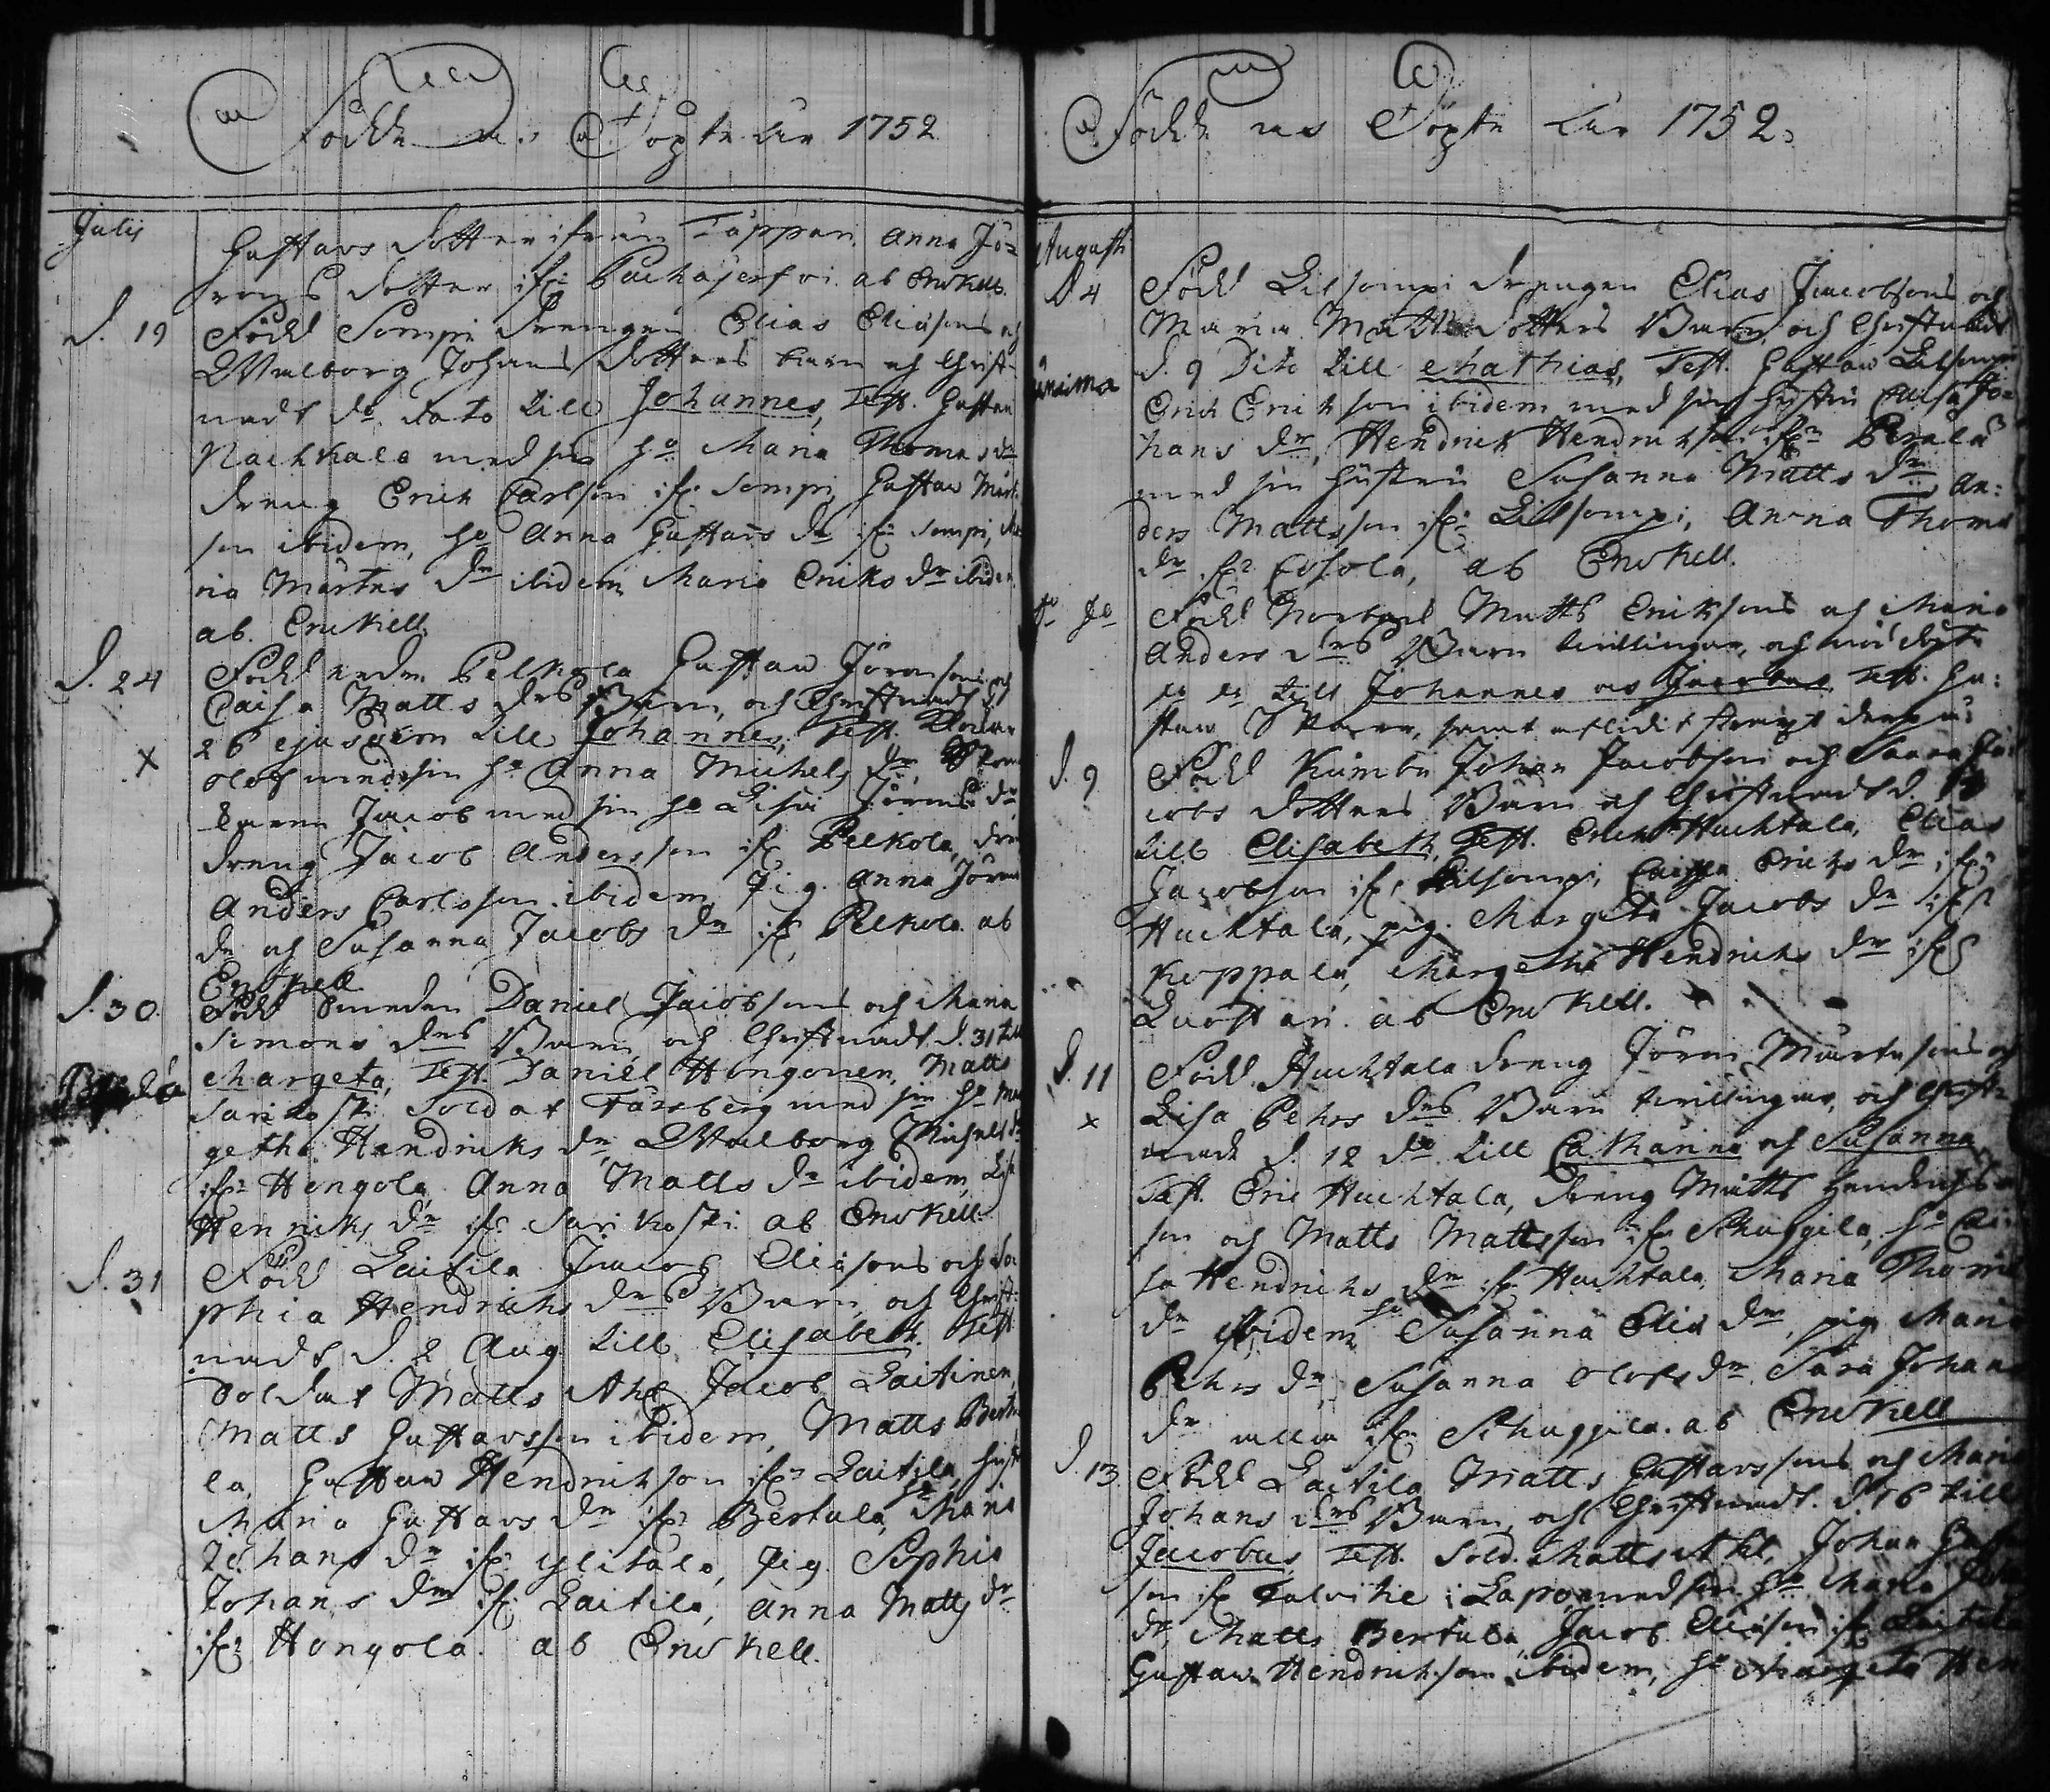 Födde och Döpte Åhr 1752
Julij
Gustavs dotter ifrån Tappari, Anna Jö-
rans dotter ifr: Pachajerfvi ab Enekell.
d. 19 Född Sompi drengen Elias Eliæsons och
Walborg Johans dotters barn och Christ-
nadt do dato till Johannes, Test. Gustav
Nackkala med sin ho Maria Thomas dr
dreng Erich Carlson ifr: Sompi, Gustav Mårt-
son ibidem, ho Anna Gustavs dr ifr: Sompi, Ma
ria Mårtens dr ibidem Maria Eriks dr ibidem
ab. Enekell.
d. 24 Född Pelkola Gustaw Jöransons och
Caisa Matts drs Barn, och Christnadt d.
26 ejusdem till Johannes, Test.
x Olof med sin ho Anna Michels dr,
Jacob med sin ho Lisa Jörans dr
dreng Jacob Andersson ifr Pelkola, dreng
Anders Carlsson ibidem, Pig. Anna Jörans
dr och Susanna Jacobs dr ifr Pelkola. ab
Enekell
d. 30. Född Smeden Daniel Jacobsons och Maria
Simons drs Barn, och Christnadt d. 31 till
Margeta, Test. Daniel Hongonen, Matts
Sarikoski Soldat Färsberg med sin ho Mar
getha Hendricks dr, Walborg Michels dr
ifr: Hongola Anna Matts dr ibidem, Lisa
Henriks dr ifr: Sarikoski ab Enekell.
d. 31 Född Laitila Jacob Eliæsons och So
phia Hendrichs drs Barn, och Christ-
nadt d. 2 Aug. till Elisabeth. Test
Soldat Matts Ahl, Jacob Laitinen,
Matts Gustavsson ibidem, Matts Bertu
la, Gustaw Hendrichson ifr: Laitila, hust
Maria Gustavs dr ifr: Bertula, ho Maria
Johans dr ifr: Ylitalo, Pig. Sophia
Johans dr ifr: Laitila, Anna Matts dr
ifr: Hongola. ab Enekell.
Födde och Döpte Åhr 1752.
Augusti
d 4 Född Lilsompi drengen Elias Jacobsons och
Maria Matts dotters Barn, och Christnadt
d. 9 Dito till Mathias, Test. Gustav Lilsompi
Erich Erichson ibidem med sin hustru Caisa Jo-
hans dr, Hendrich Hendrichson ifr: Perälä
med sin hustru Susanna Matts dr, An-
ders Mattsson ifr: Lilsompi, Anna Thomas
dr ifr: Eosola, ab Enekell.
do do Född Matts Eriksons och Maria
Anders drs Barn tvillingar, och döpt
till Johannes och Jacobus Test. Gu-
stav
d. 9 Född Kumbu Johan Jacobson och Saara Ja
cobs dotters Barn och Christnadt d.
till Elisabeth, Test. Erich Huchtala, Elias
Jacobson ifr: Lilsompi, Caisa Erichs dr ifr:
Huchtala, pig. Margeta Jacobs dr ifr
Koppala, Margetha Hendrichs dr ifr
ab Enekell.
d. 11 Född Huchtala dreng Jöran Mårtensons och
x Lisa Pehrs drs Barn tvillingar, och Christ-
nadt d. 12 do till Catharina och Susanna
Test. Eric Huchtala, dreng Matts Hendrichs
son och Matts Mattsson ifr Schuggila, ho Cai
sa Hendrichs dr ifr Huchtala, Maria Thomæ
dr ibidem, ho Susanna Eliæ dr, pig Maria
Pehrs dr, Susanna Olofs dr, Sara Johans
dr alla ifr: Schuggila. ab Enekell
d. 13 Född Laitila Matts Gustavssons och Maria
Johans drs Barn, och Christnadt. d 16 till
Jacobus, Test. Sold. Matts Ahl, Johan Gust
son ifr Talvitie i Lapo med sin ho Maria
dr, Matts Bertula, Jacob Eliæson ifr: Laitila
Gustaw Hendrichson ibidem, ho Margeta Hen